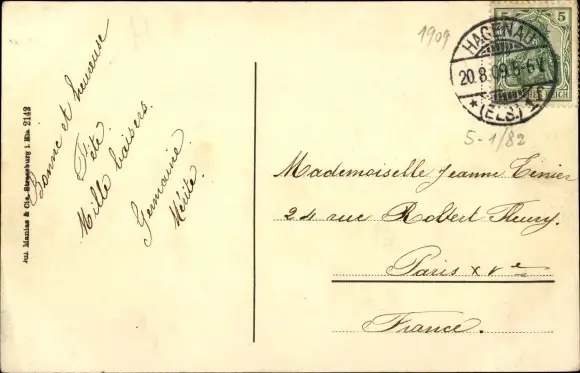 Bonne et heureuse
Fête
Mille baisers.
Germaine.
Jul. Manias & Cie. Strassburg i. Els. 2142
1909
5 5
HAGENAU
20.8.09. 5-6 V.
* (ELS.) 1
5-1/82
Mademoiselle Jeanne
24 rue Robert Fleury.
Paris XVe
France.